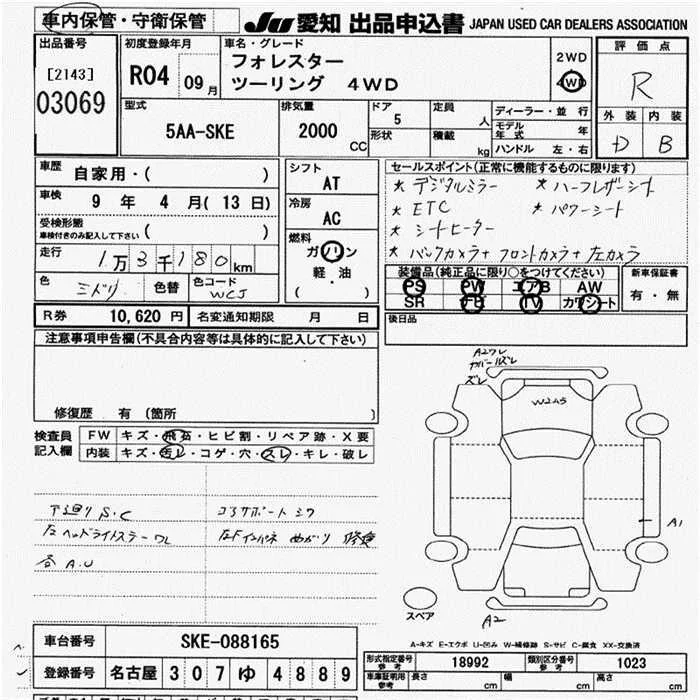 車内保管・守衛保管
JU 愛知 出品申込書 JAPAN USED CAR DEALERS ASSOCIATION
出品番号
[2143]
03069
初度登録年月
R04 09月
車名・グレード
フォレスター
ツーリング 4WD
2WD
4WD
評価点
R
外装 内装
D B
型式
5AA-SKE
排気量
2000
CC
ドア
5
形状
定員
人
積載
kg
ディーラー・並行
モデル年式 年
ハンドル 左・右
車歴
自家用・( )
車検
9年 4月(13日)
受検形態
車検付きのみ記入して下さい ( )
走行
1万3千180km
色
ミドリ
色替
色コード
WCJ
シフト
AT
冷房
AC
燃料
ガソリン
軽・油
( )
セールスポイント(正常に機能するものに限ります)
* デジタルミラー * ハーフレザーシート
* ETC * パワーシート
* シートヒーター
* バックカメラ+フロントカメラ+左カメラ
装備品(純正品に限り○をつけてください)
PS PW エアB AW
SR ナビ TV カワシート
新車保証書
有・無
R券 10,620円
名変通知期限 月 日
後日品
注意事項申告欄(不具合内容等は具体的に記入して下さい)
修復歴 有 (箇所 )
検査員記入欄
FW キズ・飛石・ヒビ割・リペア跡・X要
内装 キズ・汚レ・コゲ・穴・スレ・キレ・破レ
下廻り S.C
コアサポート シワ
左ヘッドライトステー ワレ
左Fインパネ めがり 修復
各 A.U
A2ワレ
カバーズレ
ズレ
W2A5
A1
A2
スペア
A-キズ E-エクボ U-凹み W-補修跡 S-サビ C-腐食 XX-交換済
車台番号 SKE-088165
登録番号 名古屋 307 ゆ 4889
形式指定番号 参考 18992
類別区分番号 参考 1023
車庫証明用 参考 長さ cm 幅 cm 高さ cm